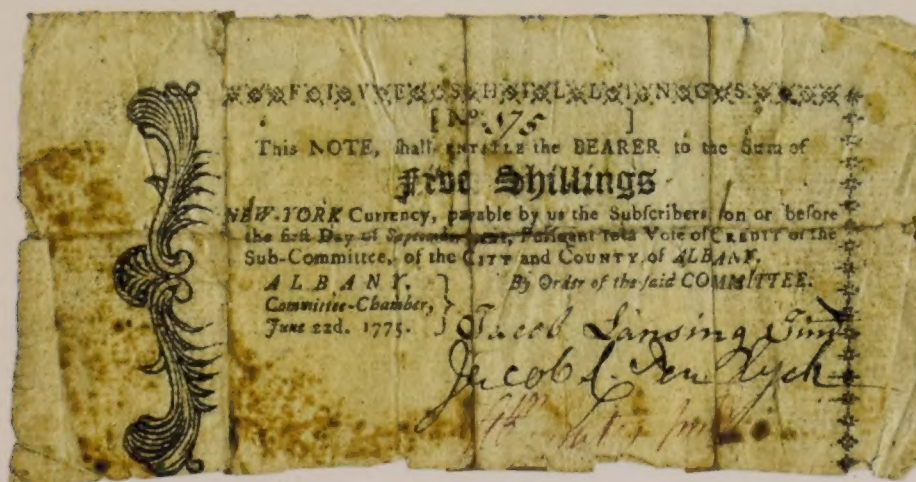 FIVE SHILLINGS
[ No. 375 ]
This NOTE, shall ENTITLE the BEARER to the Sum of
Five Shillings
NEW-YORK Currency, payable by us the Subscribers, on or before
the first Day of September next, Pursuant to a Vote of CREDIT of the
Sub-Committee, of the CITY and COUNTY, of ALBANY.
ALBANY.
Committee-Chamber,
June 22d. 1775.
By Order of the said COMMITTEE.
Jacob Lansing Junr
Jacob C. Ten Eyck